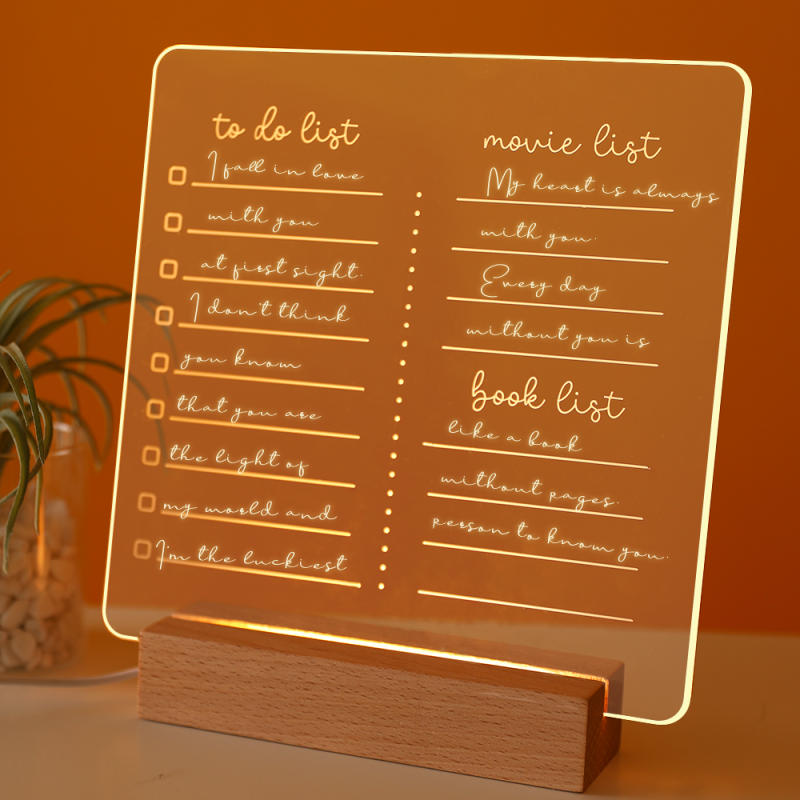 to do list
I fall in love
with you
at first sight.
I don't think
you know
that you are
the light of
my world and
I'm the luckiest
movie list
My heart is always
with you.
Every day
without you is
book list
like a book
without pages.
person to know you.